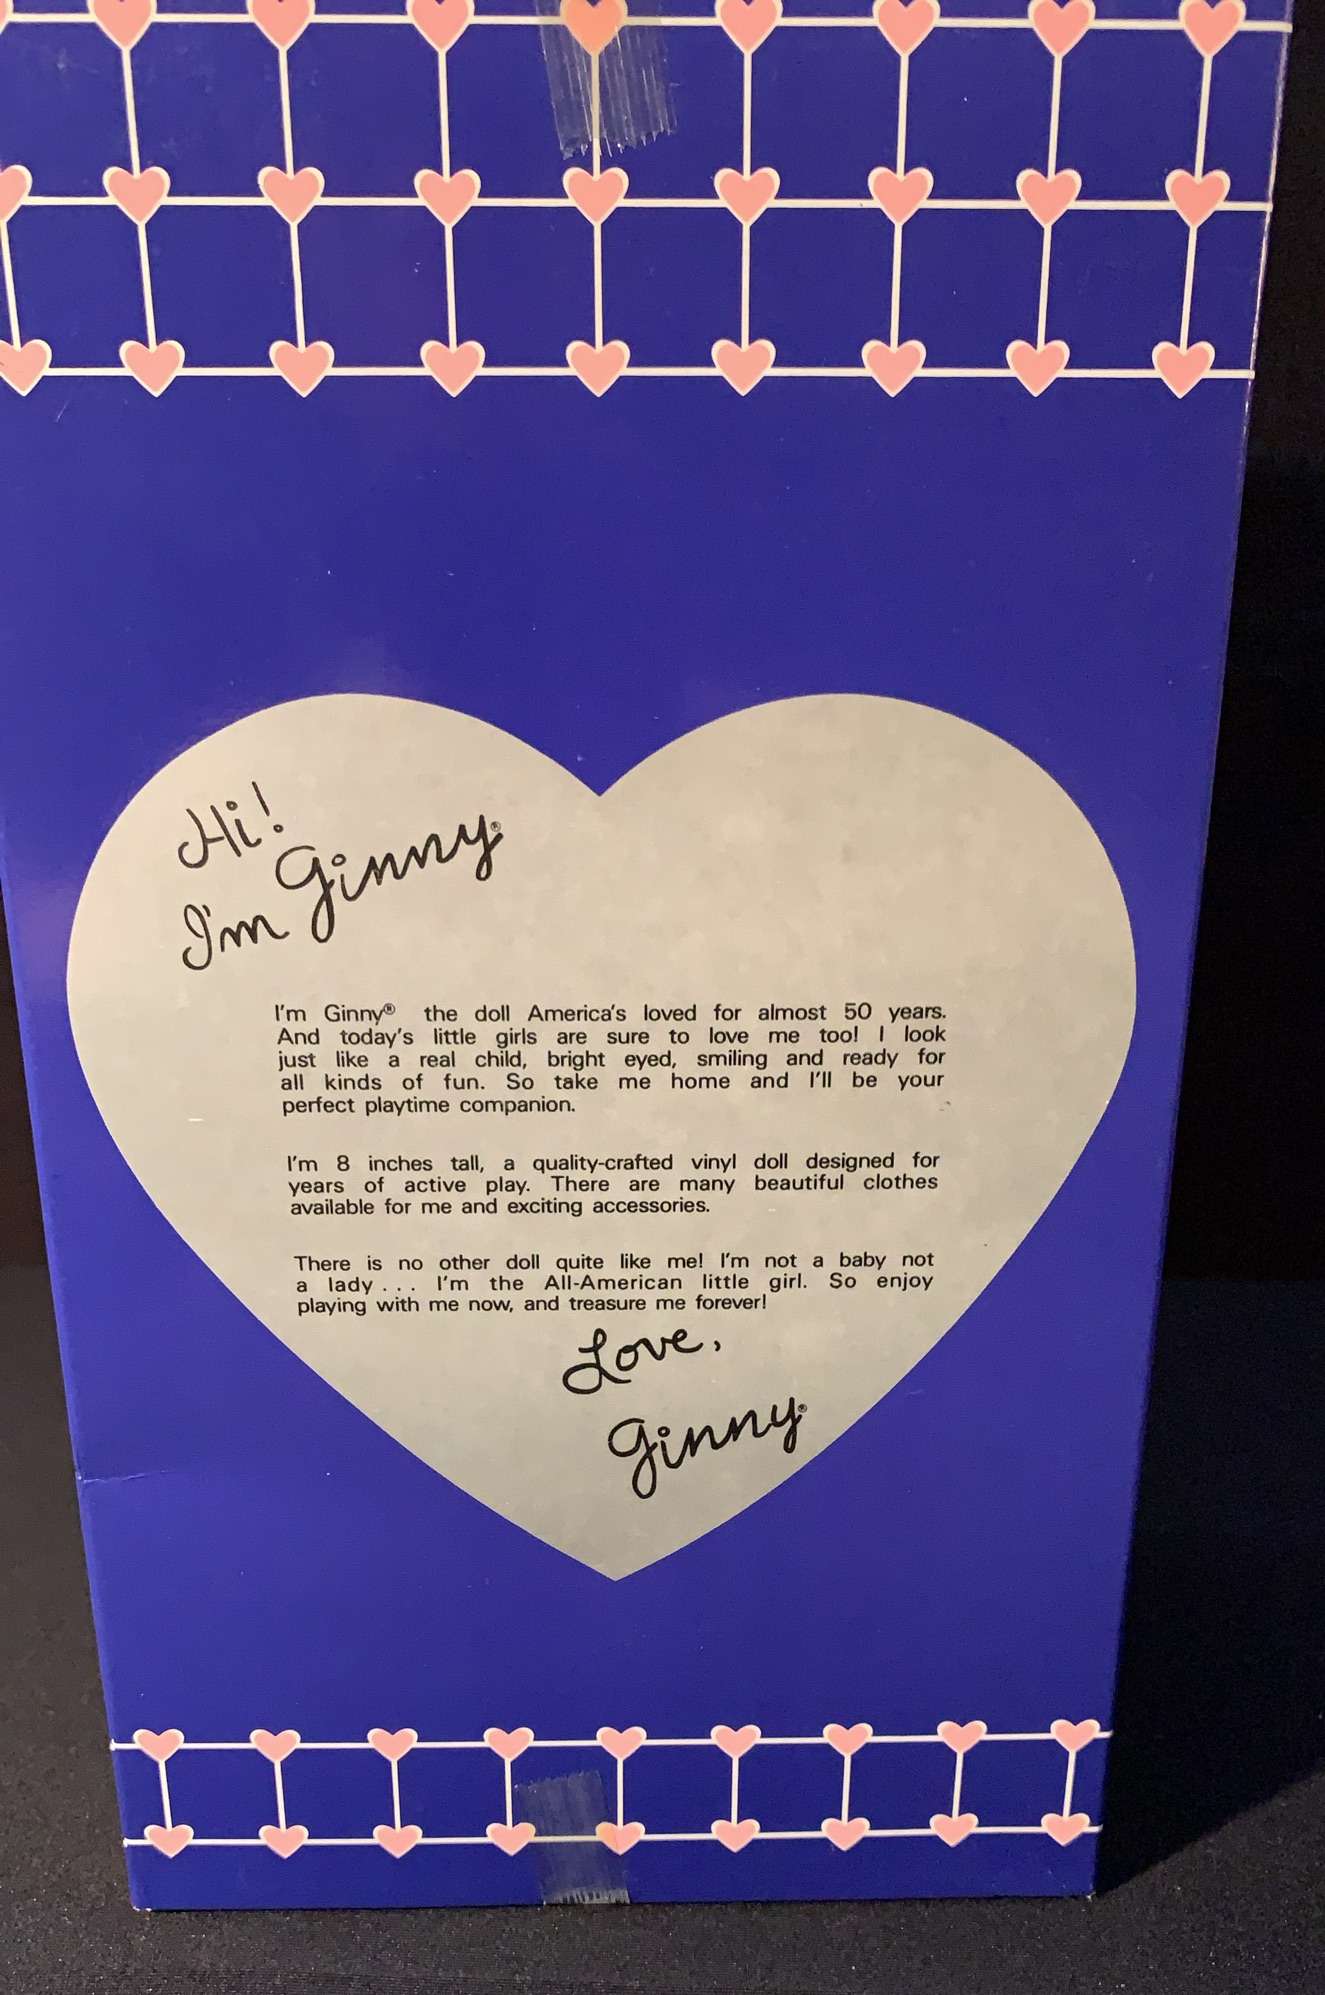 Hi!
I'm Ginny®
I'm Ginny® the doll America's loved for almost 50 years.
And today's little girls are sure to love me too! I look
just like a real child, bright eyed, smiling and ready for
all kinds of fun. So take me home and I'll be your
perfect playtime companion.
I'm 8 inches tall, a quality-crafted vinyl doll designed for
years of active play. There are many beautiful clothes
available for me and exciting accessories.
There is no other doll quite like me! I'm not a baby not
a lady . . . I'm the All-American little girl. So enjoy
playing with me now, and treasure me forever!
Love,
Ginny®